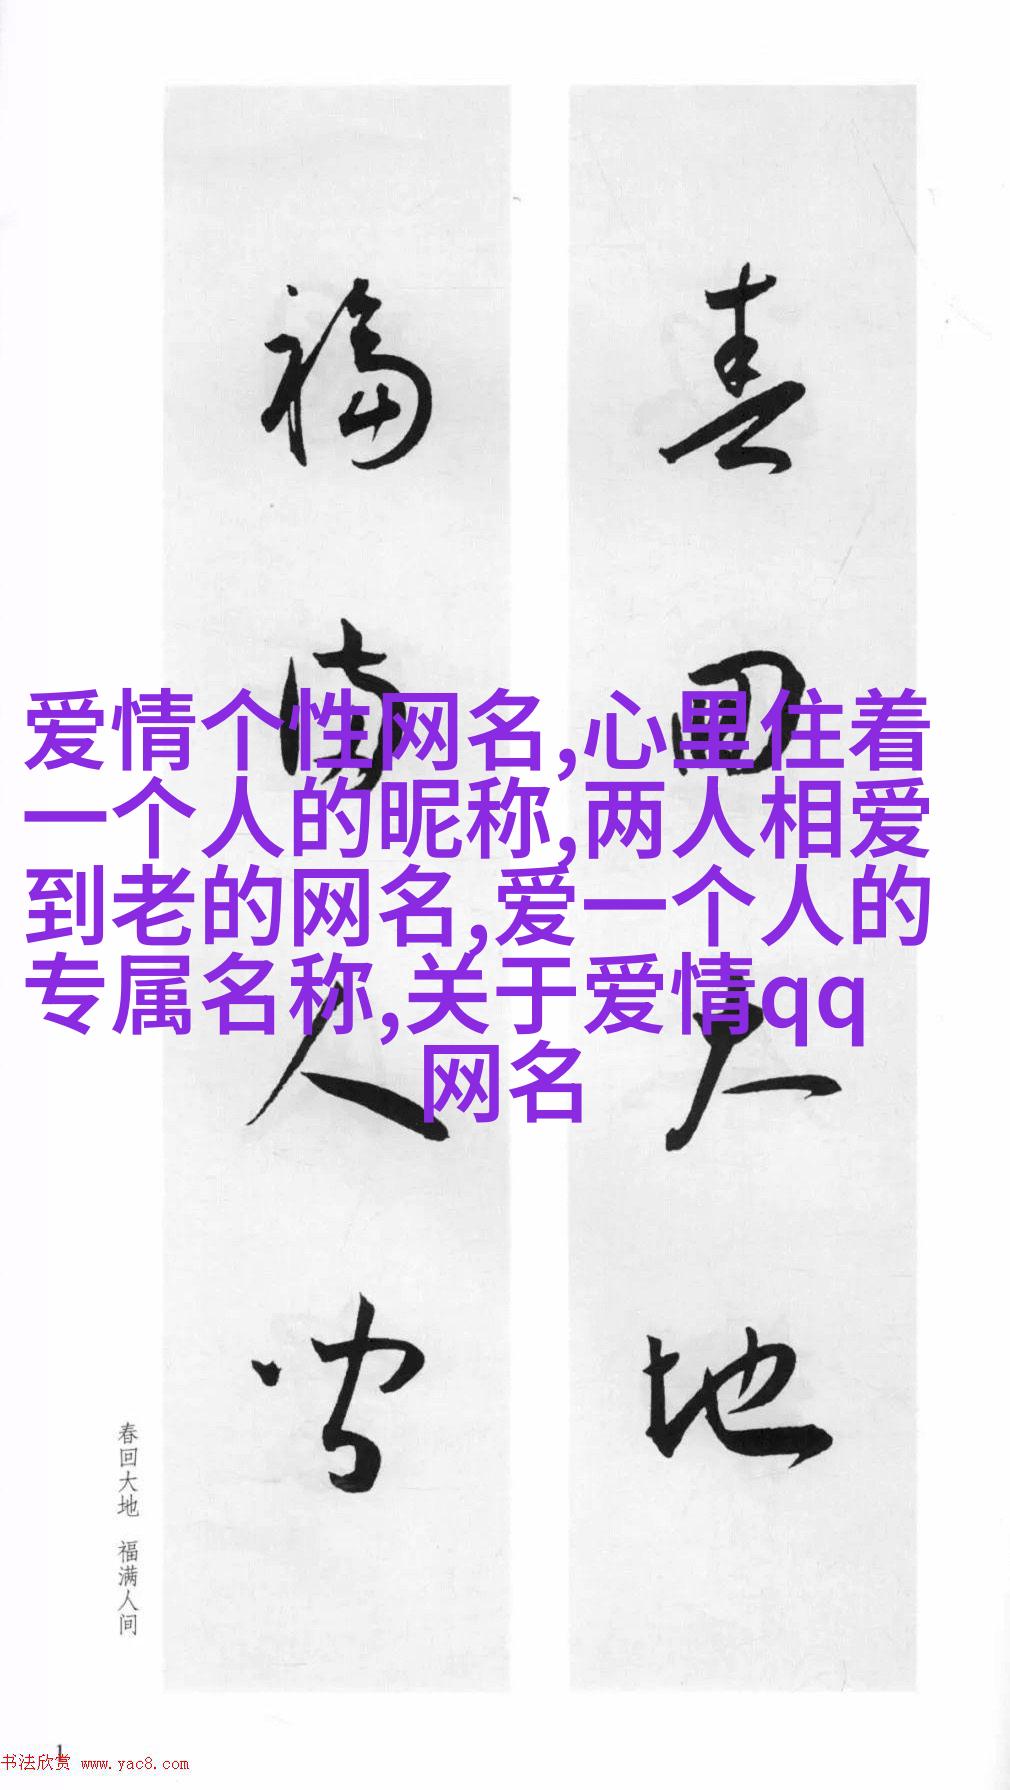 春回大地
福满人间
爱情个性网名,心里住着
一个人的昵称,两人相爱
到老的网名,爱一个人的
专属名称,关于爱情qq
网名
春回大地 福满人间
1
书法欣赏 www.yac8.com